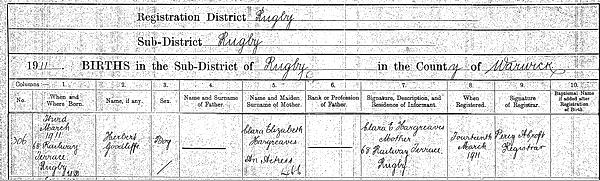 Registration District Rugby
Sub-District Rugby
1911. BIRTHS in the Sub-District of Rugby in the County of Warwick
Columns :— 1. 2. 3. 4. 5. 6. 7. 8. 9. 10.
No. When and Where Born. Name, if any. Sex. Name and Surname of Father. Name and Maiden Surname of Mother. Rank or Profession of Father. Signature, Description, and Residence of Informant. When Registered. Signature of Registrar. Baptismal Name if added after Registration of Birth.
306 Third March 1911 68 Railway Terrace Rugby
Herbert Goodliffe
Boy
Clara Elizabeth Hargreaves An Actress
Clara E Hargreaves Mother 68 Railway Terrace Rugby
Fourteenth March 1911
Percy Registrar